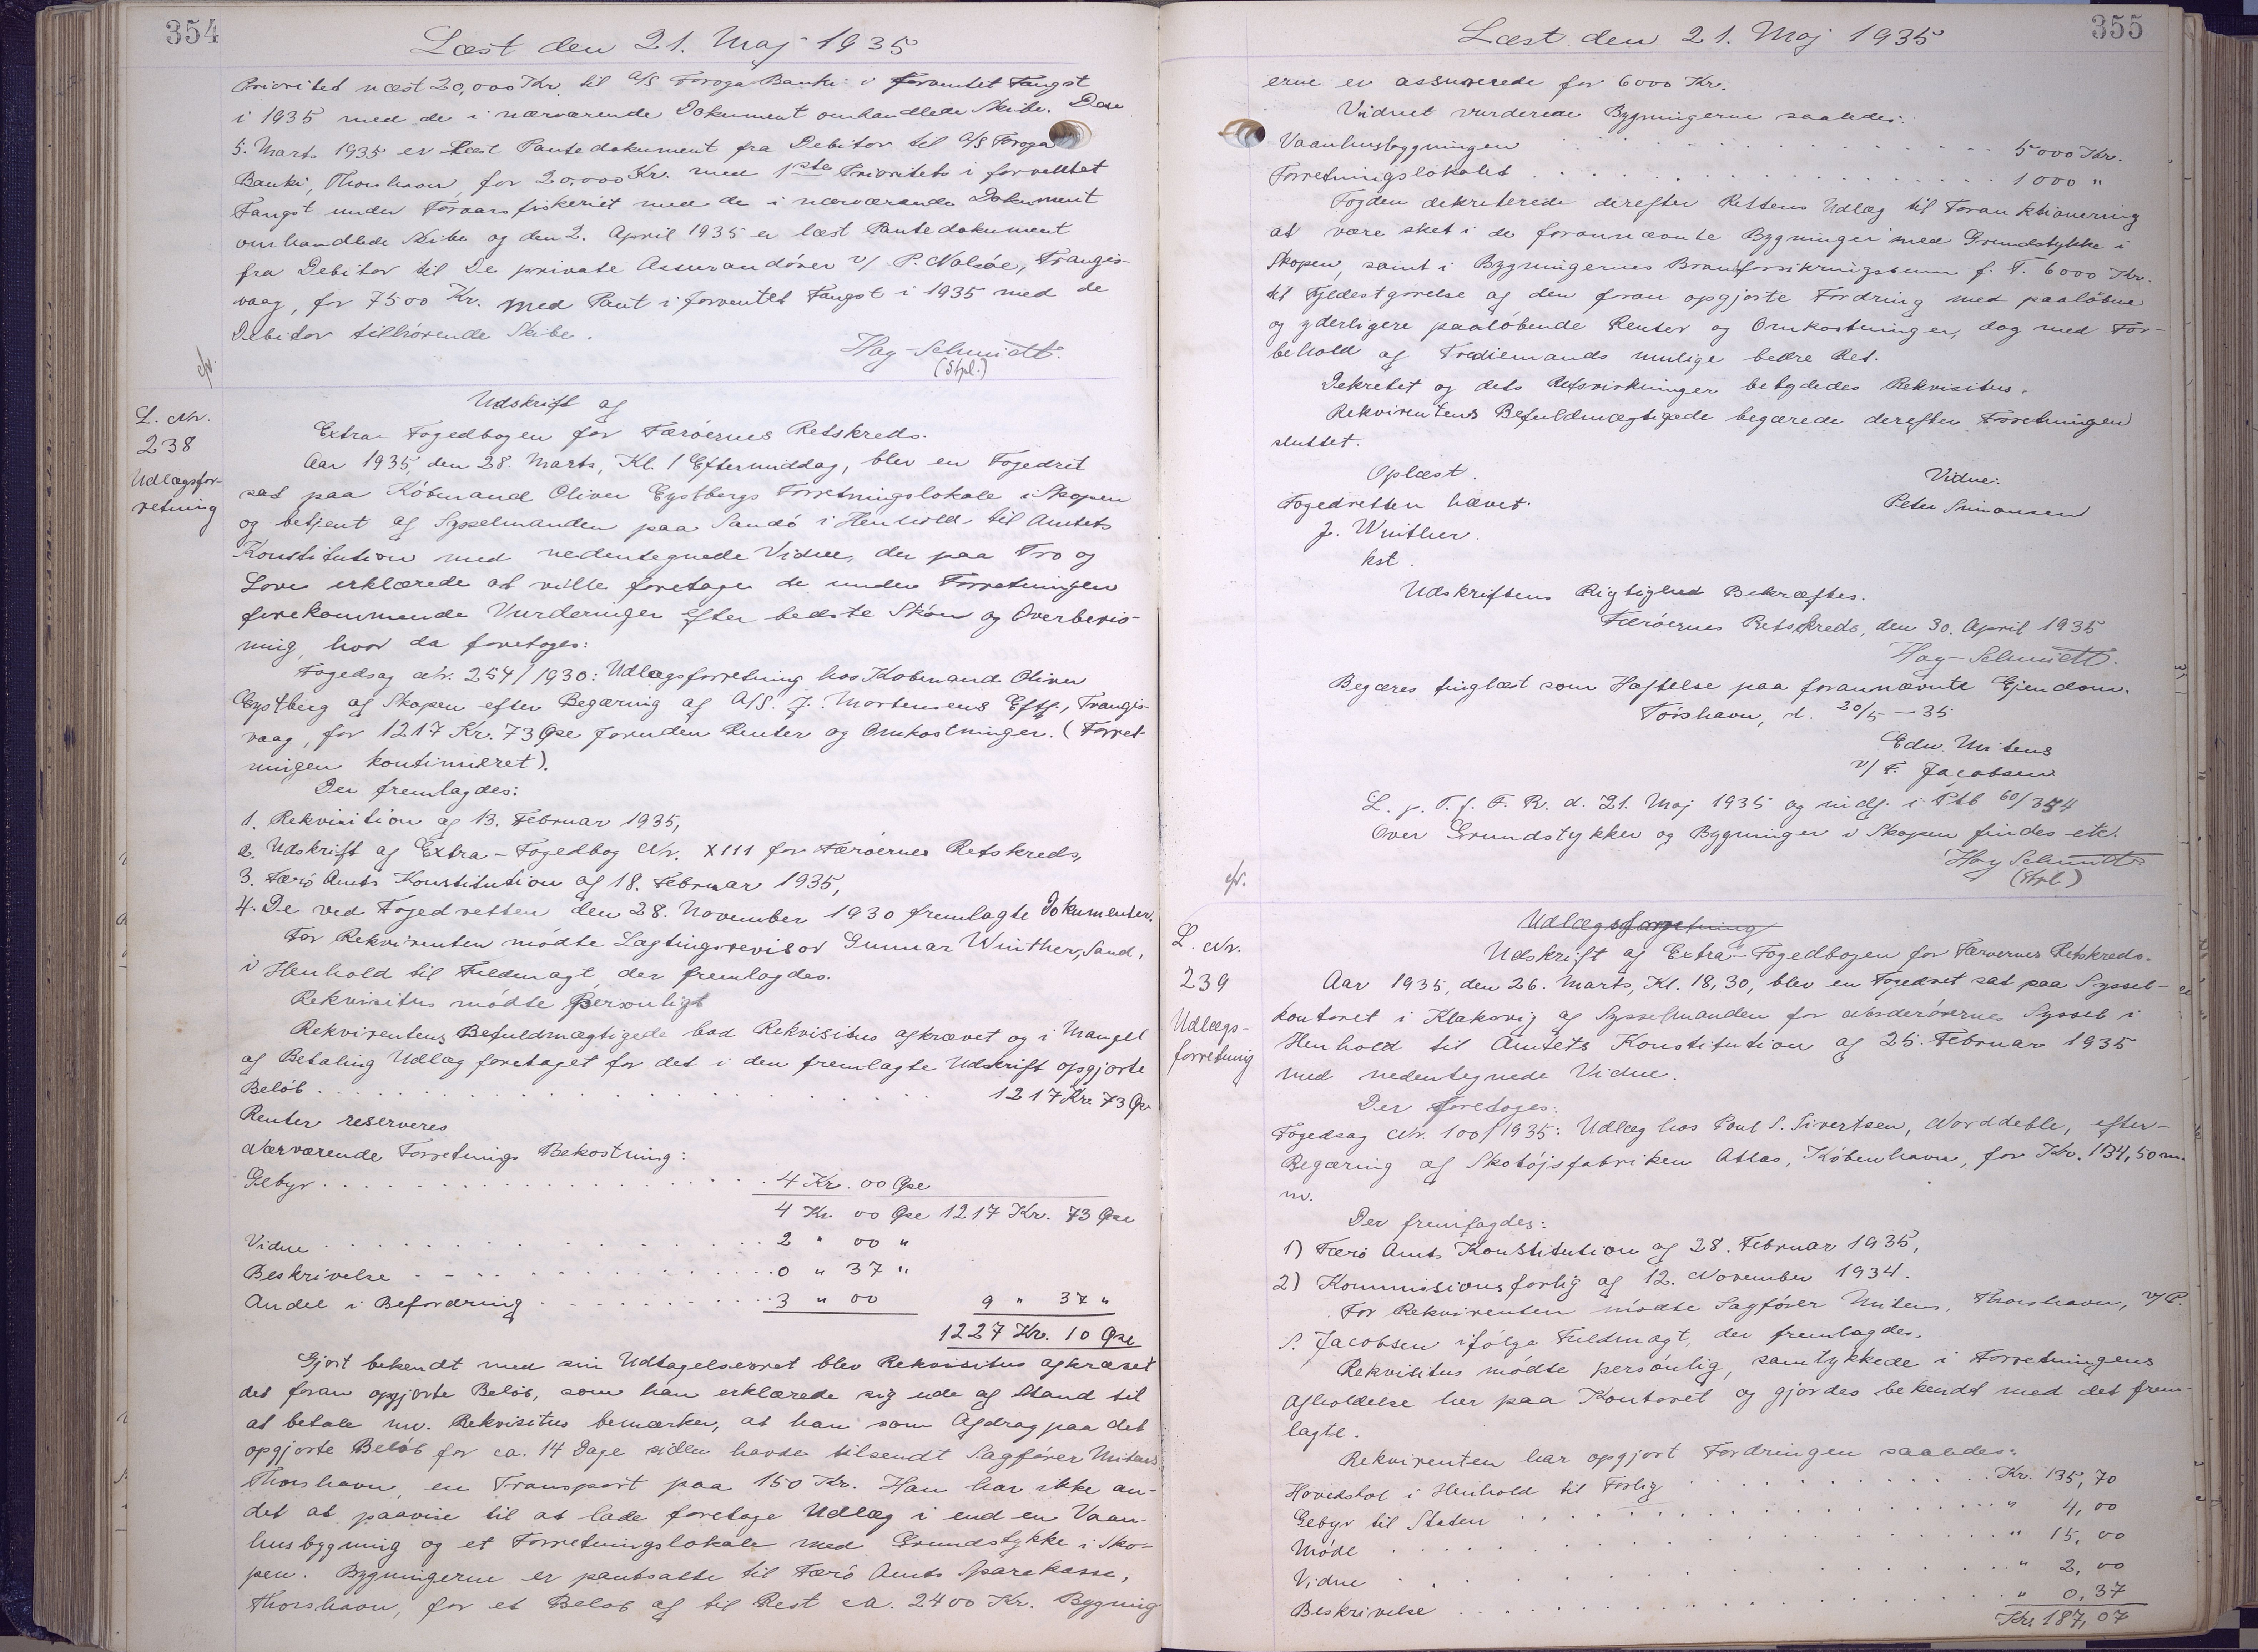 354
Læst den 21. Maj 1935
Prioritet næst 20,000 Kr. til A/S Föroya Banki i forventet Fangst
i 1935 med de i nærværende Dokument omhandlede Skibe. Den
5. Marts 1935 er læst Pantedokument fra Debitor til A/S Föroya
Banki, Thorshavn, for 20.000 Kr. med 1ste Prioritets i forventet
Fangst under Foraarsfiskeriet med de i nærværende Dokument
omhandlede Skibe og den 2. April 1935 er læst Pantedokument
fra Debitor til De private Assurandörer v/ P. Nolsöe, Trangis-
vaag, for 7500 Kr. med Pant i forventet Fangst i 1935 med de
Debitor tilhörende Skibe.
Hag-Schmidt.
(Stpl.)
L. Nr.
238
Udlægsfor-
retning
Udskrift af
Extra-Fogedbogen for Færöernes Retskreds.
Aar 1935, den 28. Marts, Kl. 1 Eftermiddag, blev en Fogedret
sat paa Köbmand Oliver Eystbergs Forretningslokale i Skopen
og betjent af Sysselmanden paa Sandö i Henhold til Amtets
Konstitution med nedentegnede Vidne, der paa Tro og
Love erklærede at ville foretage de under Forretningen
forekommende Vurderinger efter bedste Skön og Overbevis-
ning, hvor da foretoges:
Fogedsag Nr. 254/1930: Udlægsforretning hos Köbmand Oliver
Eystberg af Skopen efter Begæring af A/S. J. Mortensens Eftf., Trangis-
vaag, for 1217 Kr. 73 Øre foruden Renter og Omkostninger. (Forret-
ningen kontinueret).
Der fremlagdes:
1. Rekvisition af 13. Februar 1935,
2. Udskrift af Extra-Fogedbog Nr. XIII for Færöernes Retskreds,
3. Færö Amts Konstitution af 18. Februar 1935,
4. De ved Fogedretten den 28. November 1930 fremlagte Dokumenter.
For Rekvirenten mödte Lagtingsrevisor Gunnar Winther, Sand,
i Henhold til Fuldmagt, der fremlagdes.
Rekvisitus mödte personligt
Rekvirentens Befuldmægtigede bad Rekvisitus afkrævet og i Mangel
af Betaling Udlæg foretaget for det i den fremlagte Udskrift opgjorte
Belöb . . . . 1217 Kr. 73 Ør
Renter reserveres
Nærværende Forretnings Bekostning:
Gebyr . . . . 4 Kr. 00 Øre
4 Kr. 00 Øre 1217 Kr. 73 Øre
Vidne . . . . 2 " 00 "
Beskrivelse . . . . 0 " 37 "
Andel i Befordring . . . . 3 " 00 9 " 37 "
1227 Kr. 10 Øre
Gjort bekendt med sin Udtagelsesret blev Rekvisitus afkrævet
det foran opgjorte Belöb, som han erklærede sig ude af Stand til
at betale nu. Rekvisitus bemærker, at han som Afdrag paa det
opgjorte Belöb for ca. 14 Dage siden havde tilsendt Sagförer Mitens,
Thorshavn, en Transport paa 150 Kr. Han har ikke an-
det at paavise til at lade foretage Udlæg i end en Vaan-
husbygning og et Forretningslokale med Grundstykke i Sko-
pen. Bygningerne er pantsatte til Færö Amts Sparekasse,
Thorshavn, for et Belöb af til Rest ca. 2400 Kr. Bygning
355
Læst den 21. Maj 1935
erne er assurerede for 6000 Kr.
Vidnet vurderede Bygningerne saaledes:
Vaanhusbygningen . . . . 5000 Kr.
Forretningslokalet . . . . 1000 "
Fogden dekreterede derefter Rettens Udlæg til Foranktionering
at være sket i de forannævnte Bygninger med Grundstykke i
Skopen, samt i Bygningernes Brandforsikringssum f. T. 6000 Kr.
til Fyldestgörelse af den foran opgjorte Fordring med paalöbne
og yderligere paalöbende Renter og Omkostninger, dog med For-
behold af Trediemands mulige bedre Ret.
Dekretet og dets Retsvirkninger betydedes Rekvisitus.
Rekvirentens Befuldmægtigede begærede derefter Forretningen
sluttet.
Oplæst.
Fogedretten hævet.
J. Winther.
kst.
Vidne:
Peter Simonsen
Udskriftens Rigtighed Bekræftes.
Færöernes Retskreds, den 30. April 1935
Hag-Schmidt.
Begæres tinglæst som Hæftelse paa forannævnte Ejendom.
Tórshavn, d. 20/5 - 35
Edw. Mitens
v/ F. Jacobsen
L. p. T. f. F. R. d. 21. Maj 1935 og indf. i Ptb 60/354
Over Grundstykker og Bygninger i Skopen findes etc.
Hag Schmidt.
(Stpl.)
L. Nr.
239
Udlægs-
forretning
Udlægsforretning
Udskrift af Extra-Fogedbogen for Færöernes Retskreds.
Aar 1935, den 26. Marts, Kl. 18,30, blev en Fogedret sat paa Syssel-
kontoret i Klaksvig af Sysselmanden for Norderöernes Syssel i
Henhold til Amtets Konstitution af 25. Februar 1935
med nedentegnede Vidne.
Der foretoges:
Fogedsag Nr. 100/1935: Udlæg hos Poul S. Sivertsen, Norddeble, efter-
Begæring af Skotöjsfabriken Atlas, Köbenhavn, for Kr. 134,50 m.
m.
Der fremlagdes:
1) Færö Amts Konstitution af 28. Februar 1935,
2) Kommisionsforlig af 12. November 1934.
For Rekvirenten mödte Sagförer Mitens, Thorshavn, v/ P.
S. Jacobsen ifölge Fuldmagt, der fremlagdes.
Rekvisitus mödte personlig, samtykkede i Forretningens
Afholdelse her paa Kontoret og gjordes bekendt med det frem-
lagte.
Rekvirenten har opgjort Fordringen saaledes:
Hovedstol i Henhold til Forlig . . . . Kr. 135,70
Gebyr til Staten . . . . " 4,00
Möde . . . . " 15,00
Vidne . . . . " 2,00
Beskrivelse . . . . " 0,37
Kr. 187,07